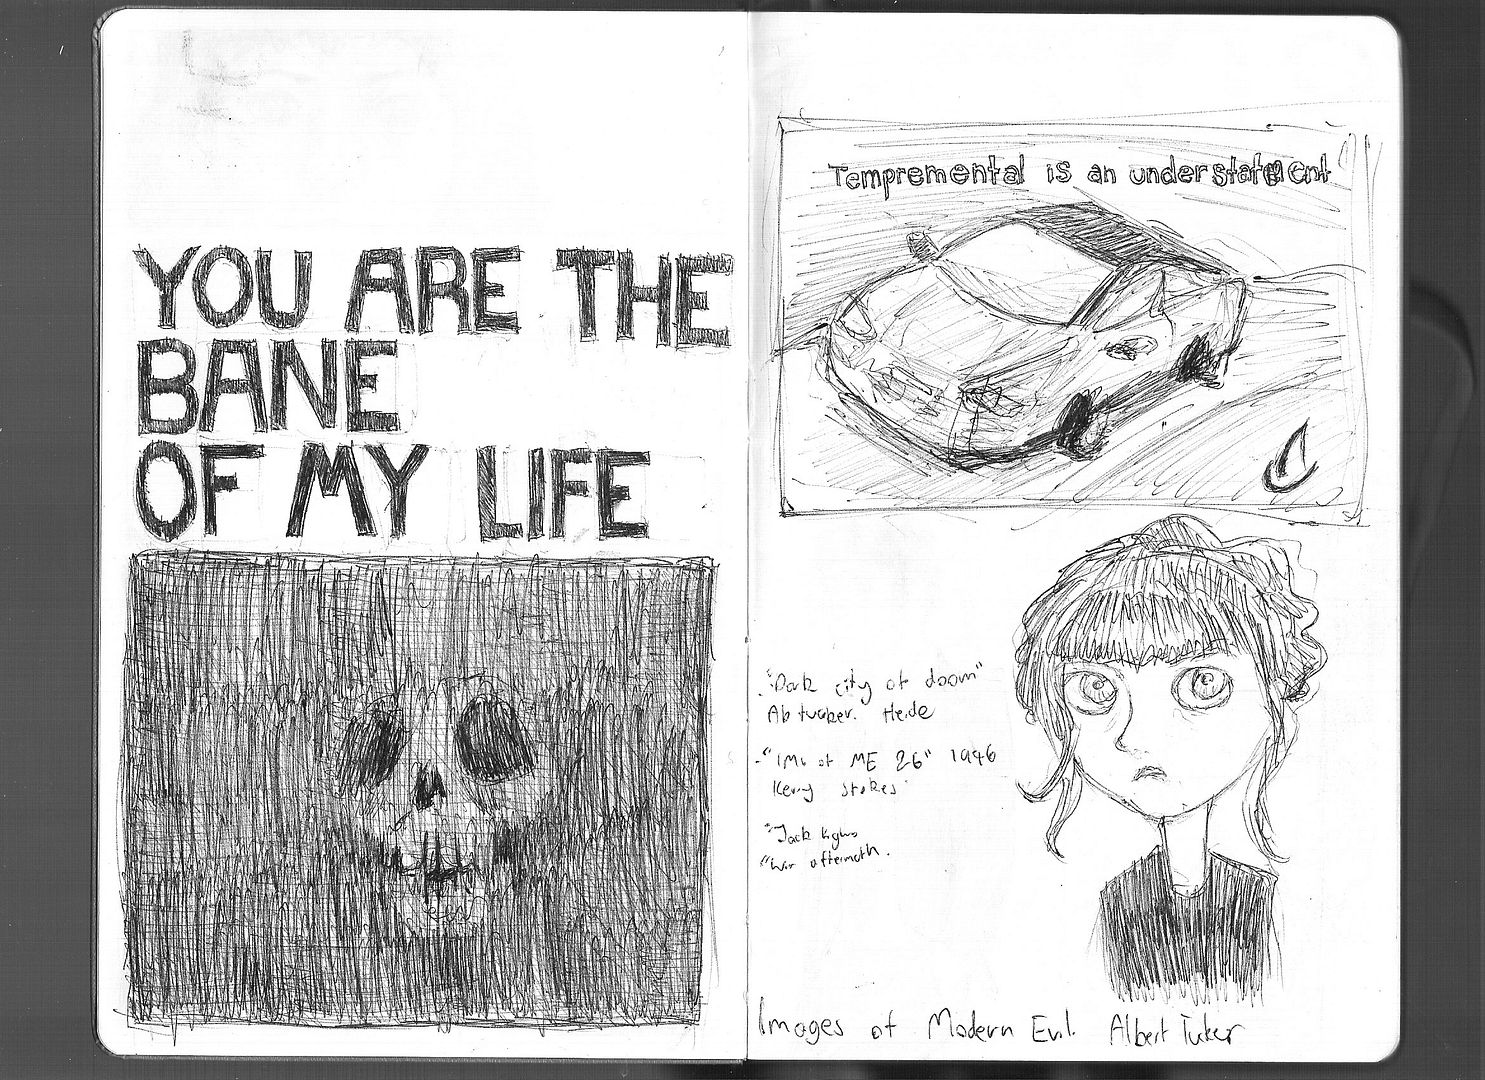 YOU ARE THE
BANE
OF MY LIFE
Tempremental is an understatement
"Dark city of doom"
Ab tucker. Heide
"IMs of ME 26" 1946
Kerry Stokes
"Jack
"War aftermath.
Images of Modern Evil. Albert Tucker